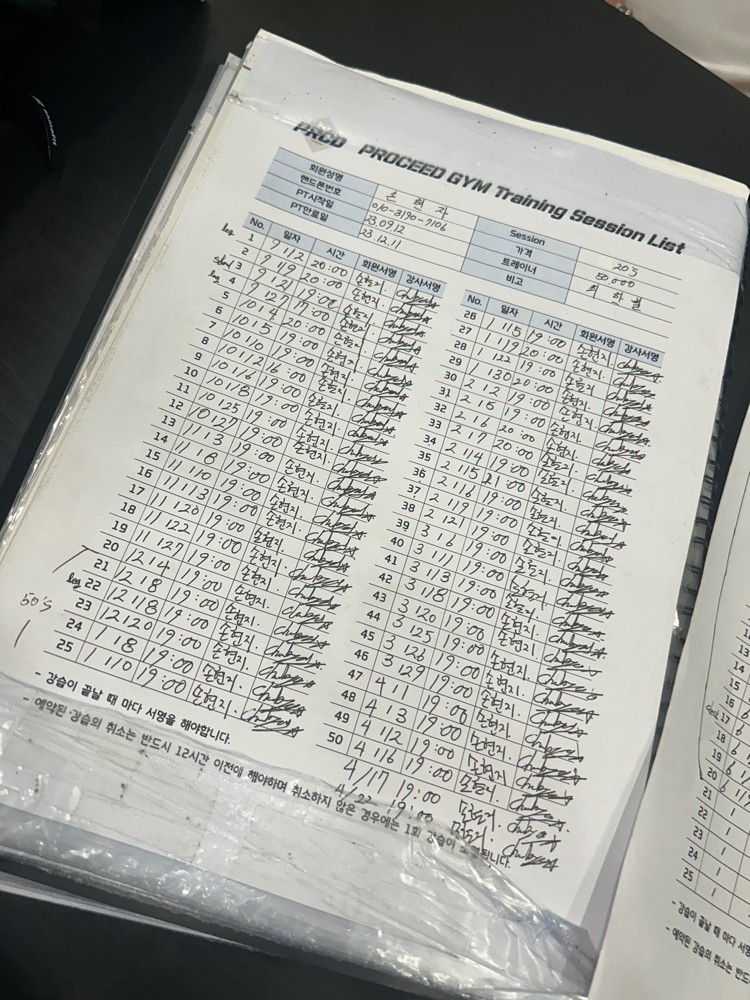 PRCD PROCEED GYM Training Session List
회원성명 손현지 Session 20's
핸드폰번호 010-3190-7106 가격 50,000
PT시작일 23.09.12 트레이너
PT만료일 23.12.11 비고
No. 일자 시간 회원서명 강사서명
leg 1 9/12 20:00 손현지.
2 9/19 20:00 손현지.
3 9/21 19:00 손현지.
leg 4 9/27 17:00 손현지.
5 10/4 20:00 손현지.
6 10/5 19:00 손현지.
7 10/10 19:00 손현지.
8 10/12 16:00 손현지.
9 10/16 19:00 손현지.
10 10/18 19:00 손현지.
11 10/25 19:00 손현지.
12 10/27 19:00 손현지.
13 11/3 19:00 손현지.
14 11/8 19:00 손현지.
15 11/10 19:00 손현지.
16 11/13 19:00 손현지.
17 11/20 19:00 손현지.
18 11/22 19:00 손현지.
19 11/27 19:00 손현지.
20 12/4 19:00 손현지.
21 12/8 19:00 손현지.
leg 22 12/18 19:00 손현지.
50's 23 12/20 19:00 손현지.
24 1/8 19:00 손현지.
25 1/10 19:00 손현지.
No. 일자 시간 회원서명 강사서명
26 1/15 19:00 손현지.
27 1/19 20:00 손현지.
28 1/22 19:00 손현지.
29 1/30 20:00 손현지.
30 2/2 19:00 손현지.
31 2/5 19:00 손현지.
32 2/6 20:00 손현지.
33 2/7 20:00 손현지.
34 2/14 19:00 손현지.
35 2/15 21:00 손현지.
36 2/16 19:00 손현지.
37 2/19 19:00 손현지.
38 2/21 19:00 손현지.
39 3/6 19:00 손현지.
40 3/11 19:00 손현지.
41 3/13 19:00 손현지.
42 3/18 19:00 손현지.
43 3/20 19:00 손현지.
44 3/25 19:00 손현지.
45 3/26 19:00 손현지.
46 3/29 19:00 손현지.
47 4/1 19:00 손현지.
48 4/3 19:00 손현지.
49 4/12 19:00 손현지.
50 4/16 19:00 손현지.
4/17 19:00 손현지.
4/22 19:00 손현지.
- 강습이 끝날 때 마다 서명을 해야합니다.
- 예약된 강습의 취소는 반드시 12시간 이전에 해야하며 취소하지 않은 경우에는 1회 강습이 됩니다.
13
14
15
16
17
18
19
20
21
22
23
24
25
- 강습이 끝날 때 마다
- 예약된 강습의 취소는 반드